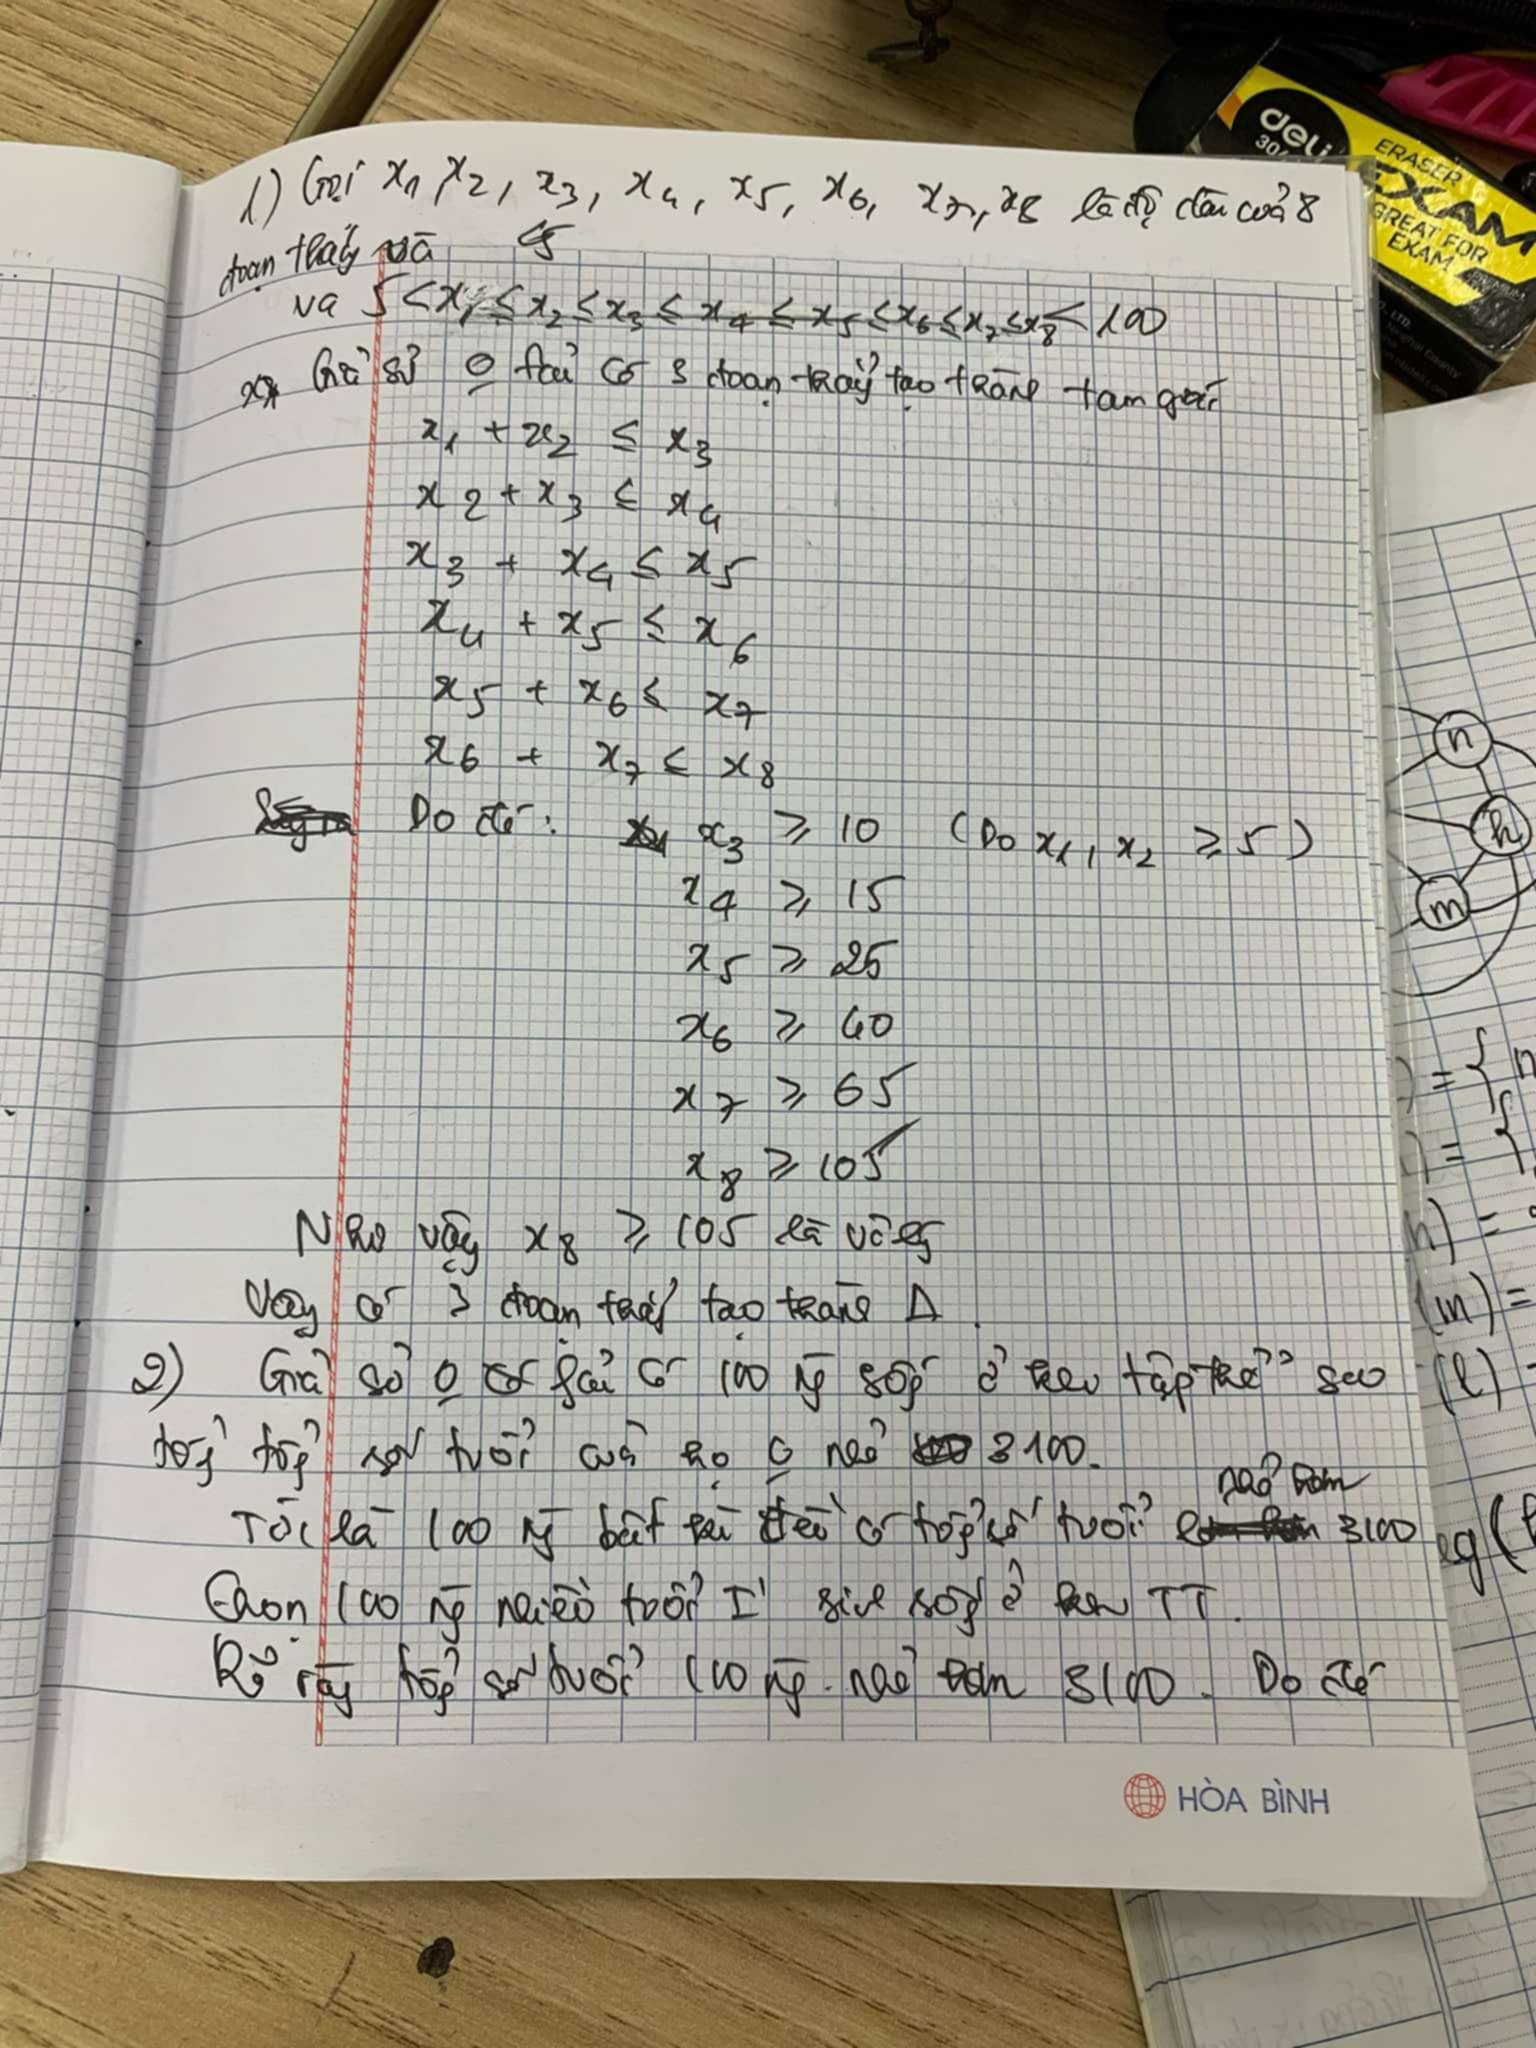 1) Gọi x1, x2, x3, x4, x5, x6, x7, x8 là độ dài của 8
đoạn thẳng và
và 5 < x1 ≤ x2 ≤ x3 ≤ x4 ≤ x5 ≤ x6 ≤ x7 ≤ x8 < 100
Giả sử 0 fải có 3 đoạn thẳng tạo thành tam giác
x1 + x2 ≤ x3
x2 + x3 ≤ x4
x3 + x4 ≤ x5
x4 + x5 ≤ x6
x5 + x6 ≤ x7
x6 + x7 ≤ x8
Do đó: x3 ⩾ 10 (Do x1, x2 ⩾ 5)
x4 ⩾ 15
x5 ⩾ 25
x6 ⩾ 40
x7 ⩾ 65
x8 ⩾ 105
Như vậy x8 ⩾ 105 là vô lý
Vậy có 3 đoạn thẳng tạo thành Δ.
2) Giả sử 0 fải có 100 ng sống ở khu tập thể sao
tổng số tuổi của họ 0 nhỏ 3100.
nhỏ hơn
Tức là 100 ng bất kì đều có tổng số tuổi 3100
Chọn 100 ng nhiều tuổi I' sinh sống ở khu TT.
Rõ ràng tổng số tuổi 100 ng nhỏ hơn 3100. Do đó
HÒA BÌNH
deli
ERASER
EXAM
GREAT FOR
EXAM
n
h
m
= { n
= {
h) =
(m) =
(l)
eg(